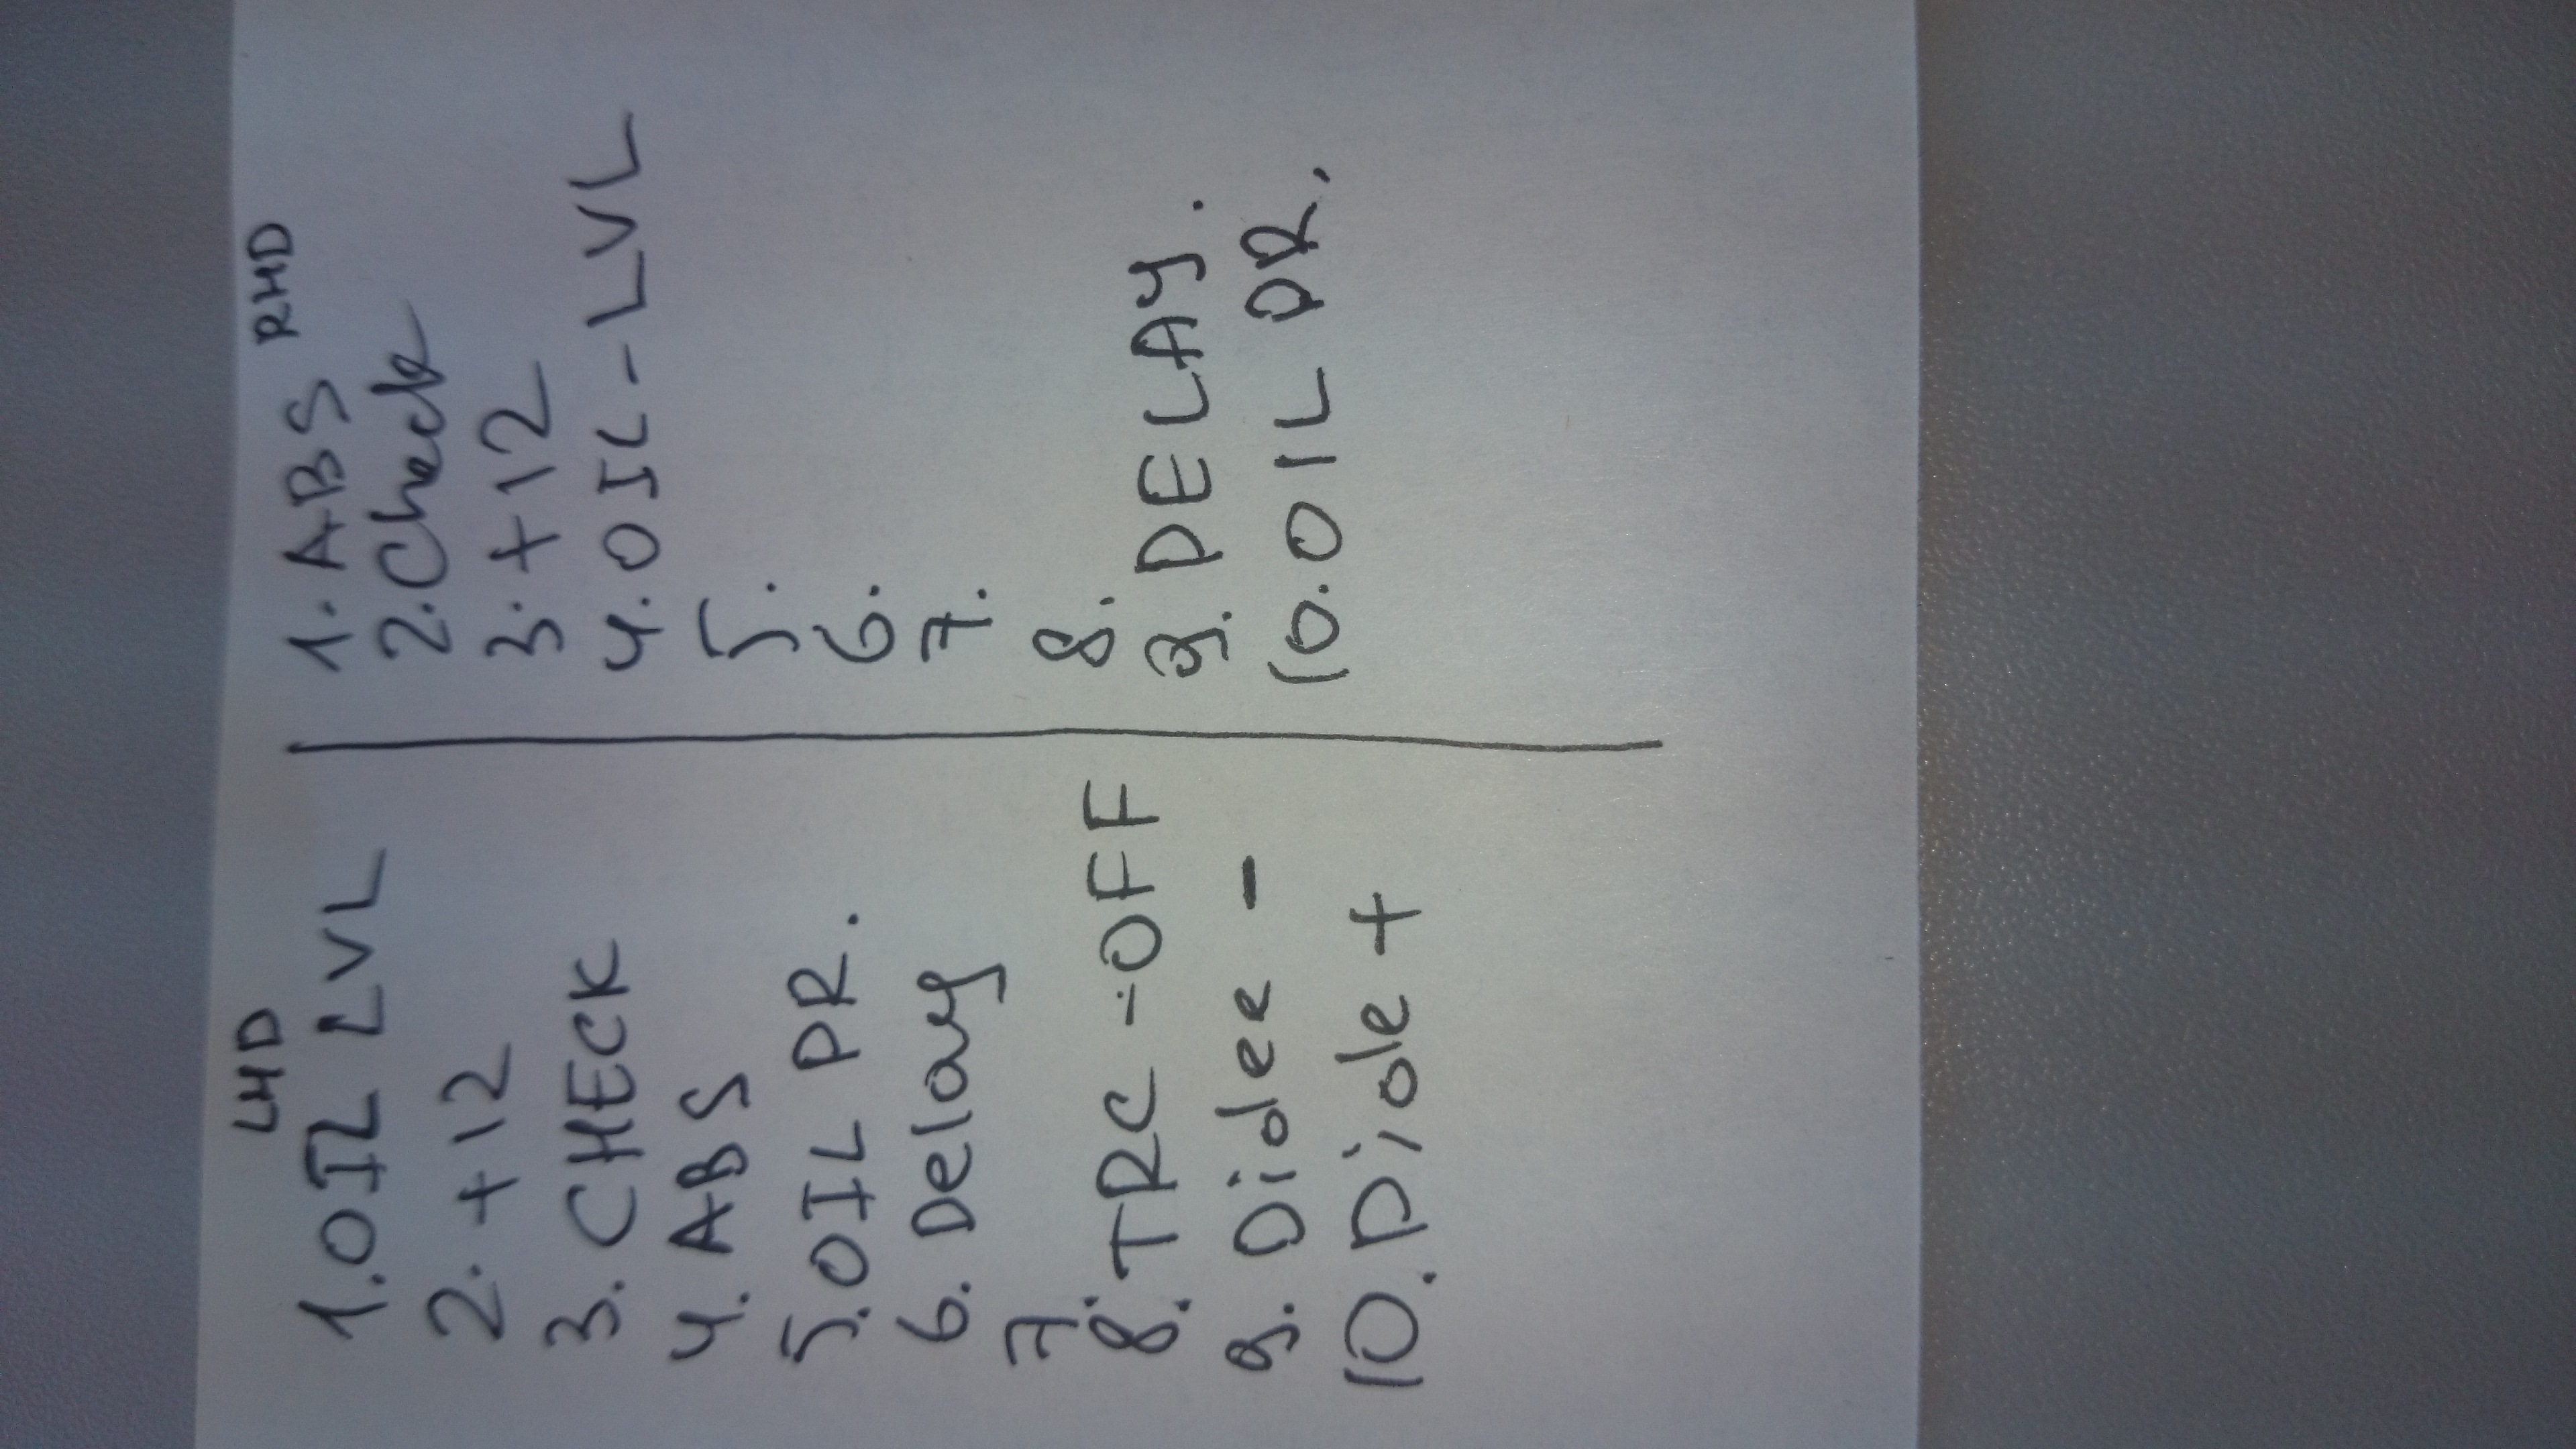 LHD
1. OIL LVL
2. +12
3. CHECK
4. ABS
5. OIL PR.
6. Delay
7.
8. TRC -OFF
9. Didee -
10. Diole +
RHD
1. ABS
2. Check
3. +12
4. OIL-LVL
5.
6.
7.
8.
9. DELAY.
10. OIL PR.